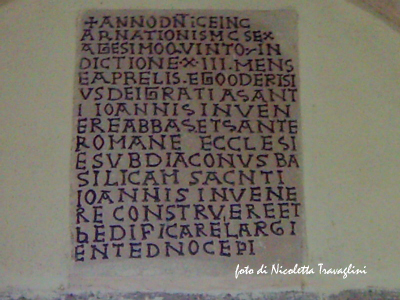 +ANNO DNICE INC
ARNATIONIS M C SEX
AGESIMO QUINTO·IN
DICTIONE·X·III·MENS
E APRELIS·EGO ODERISI
US DEI GRATIA SANT
I IOANNIS IN VEN
ERE ABBAS·ET SANTE
ROMANE ECCLESI
E SUBDIACONUS BA
SILICAM SACNTI
IOANNIS IN VENE
RE CONSTRVERE ET
hEDIFICARE LARGI
ENTE DNO CEPI
foto di Nicoletta Travaglini